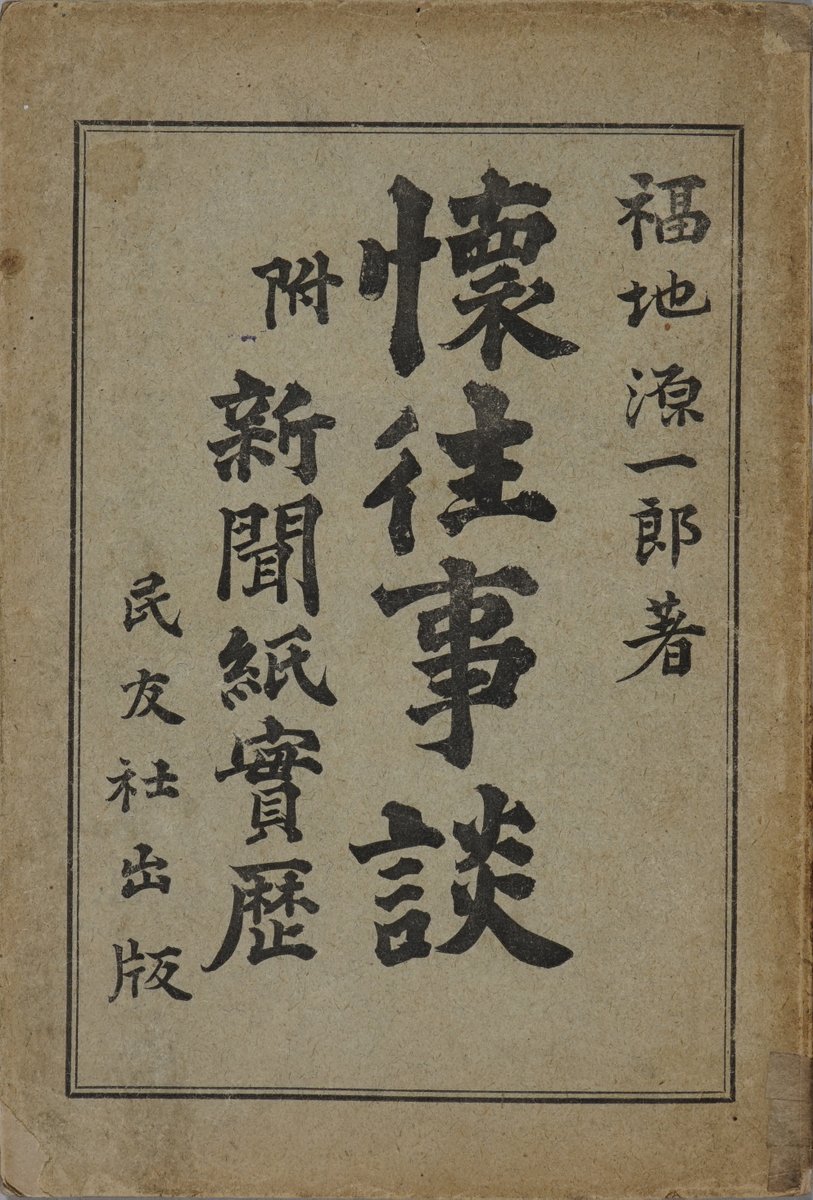 福地源一郎著
懷往事談
附 新聞紙實歷
民友社出版